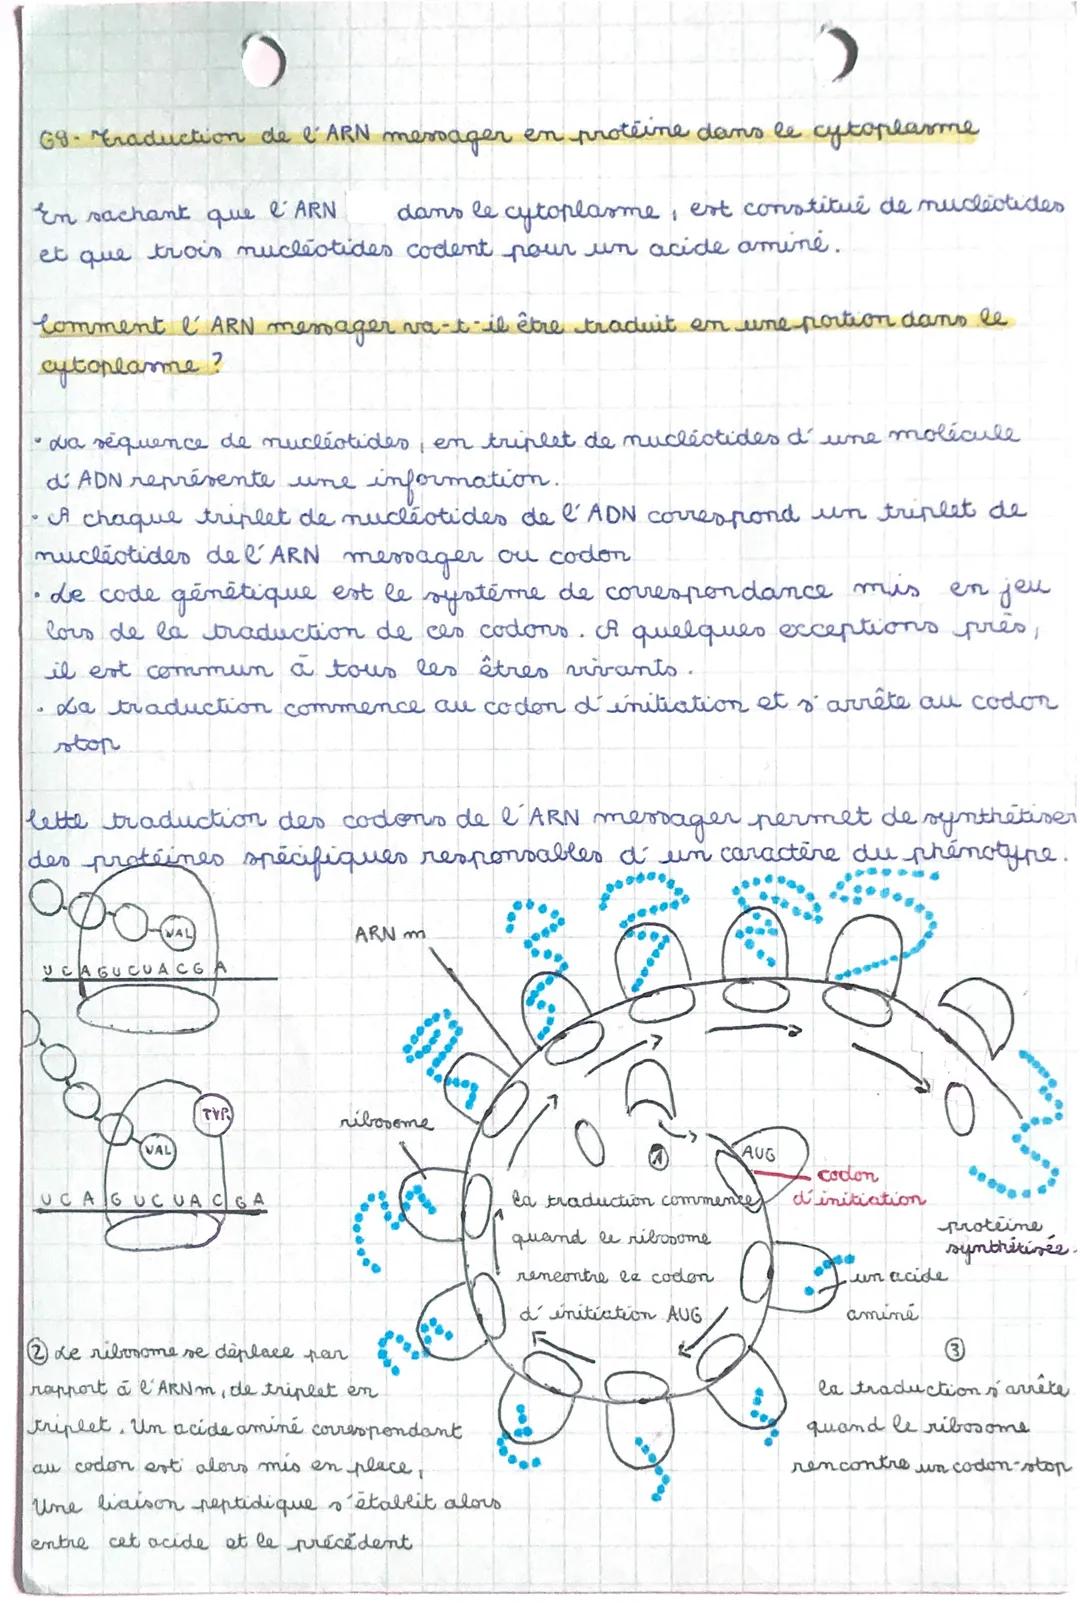 G8- Traduction de l'ARN messager en protéine dans le cytoplasme
En sachant que l'ARN dans le cytoplasme, est constitué de nucléotides
et que trois nucléotides codent pour un acide aminé.
Comment l'ARN messager va-t-il être traduit en une portion dans le
cytoplasme ?
• La séquence de nucléotides, en triplet de nucléotides d'une molécule
d'ADN représente une information.
• A chaque triplet de nucléotides de l'ADN correspond un triplet de
nucléotides de l'ARN messager ou codon
• Le code génétique est le système de correspondance mis en jeu
lors de la traduction de ces codons. A quelques exceptions près,
il est commun à tous les êtres vivants.
• La traduction commence au codon d'initiation et s'arrête au codon
stop
Cette traduction des codons de l'ARN messager permet de synthétiser
des protéines spécifiques responsables d'un caractère du phénotype.
VAL
UCAGUCUACGA
TYR
VAL
UCAGUCUACGA
ARN m
ribosome
1
AUG
codon
d'initiation
la traduction commence
quand le ribosome
rencontre le codon
d'initiation AUG
protéine
synthétisée.
un acide
aminé
② Le ribosome se déplace par
rapport à l'ARNm, de triplet en
triplet. Un acide aminé correspondant
au codon est alors mis en place,
Une liaison peptidique s'établit alors
entre cet acide et le précédent
③
la traduction s'arrête
quand le ribosome
rencontre un codon-stop